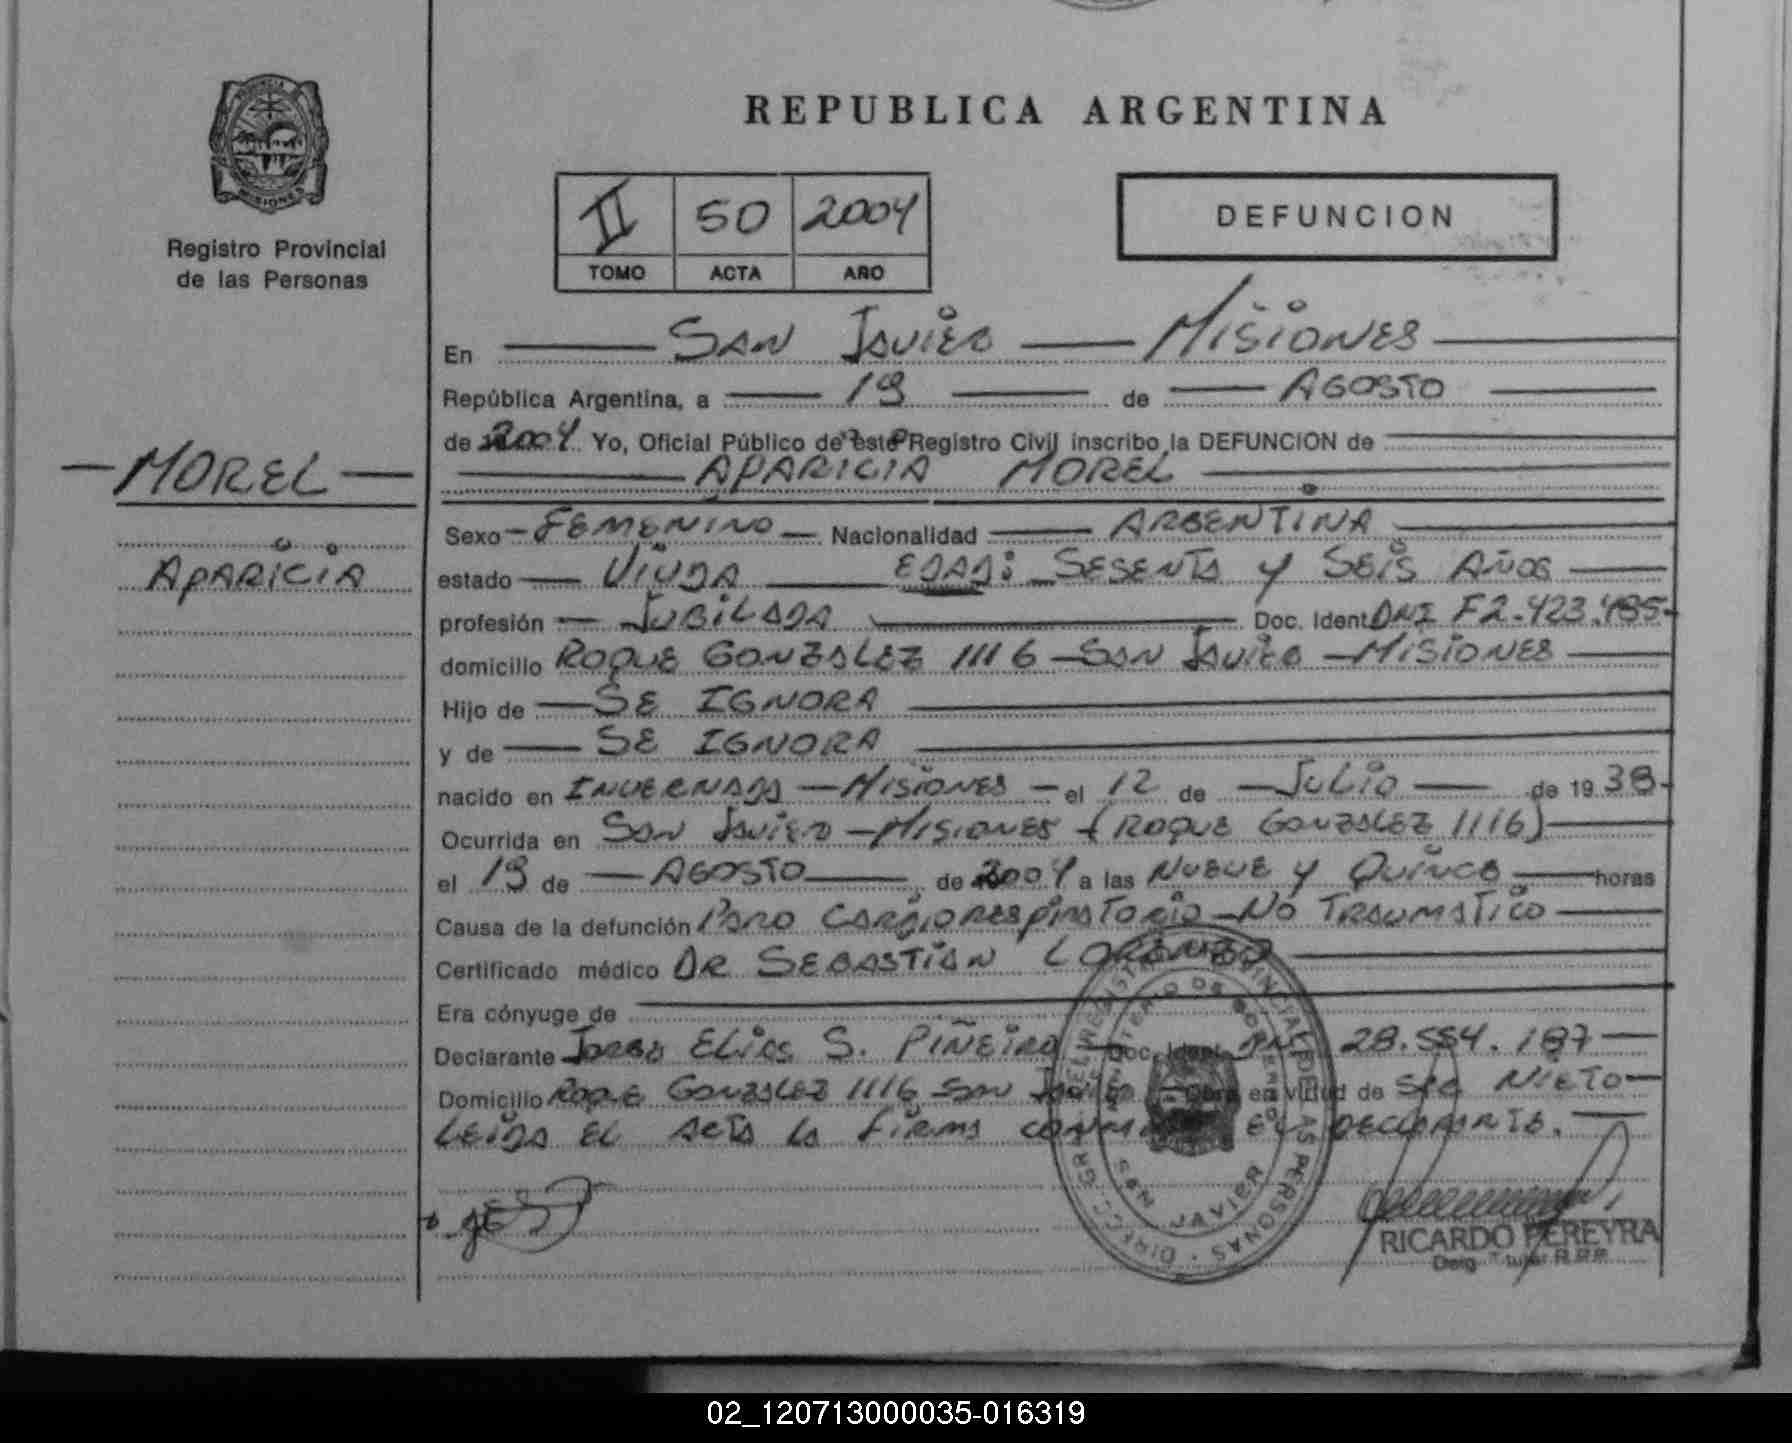 REPUBLICA ARGENTINA
Registro Provincial
de las Personas
II 50 2004
TOMO ACTA AÑO
DEFUNCION
En SAN JAVIER MISIONES
República Argentina, a 19 de AGOSTO
de 2004 Yo, Oficial Público de este Registro Civil inscribo la DEFUNCION de
APARICIA MOREL
MOREL
APARICIA
Sexo FEMENINO Nacionalidad ARGENTINA
estado VIUDA EDAD: SESENTA Y SEIS AÑOS
profesión JUBILADA Doc. Ident DNI F2.423.485
domicilio ROQUE GONZALEZ 1116 - SAN JAVIER - MISIONES
Hijo de SE IGNORA
y de SE IGNORA
nacido en INVERNADA - MISIONES - el 12 de JULIO de 19 38
Ocurrida en SAN JAVIER - MISIONES - (ROQUE GONZALEZ 1116)
el 19 de AGOSTO de 2004 a las NUEVE Y QUINCE horas
Causa de la defunción PARO CARDIORESPIRATORIO - NO TRAUMATICO
Certificado médico DR SEBASTIAN LORENZO
Era cónyuge de
Declarante JORGE ELIAS S. PIÑEIRO Doc. Ident. DNI 28.554.187
Domicilio ROQUE GONZALEZ 1116 SAN JAVIER - Obra en virtud de SER NIETO
LEIDA EL ACTA LA FIRMA CONMIGO EL DECLARANTE.
SAN JAVIER
RICARDO PEREYRA
02_120713000035-016319